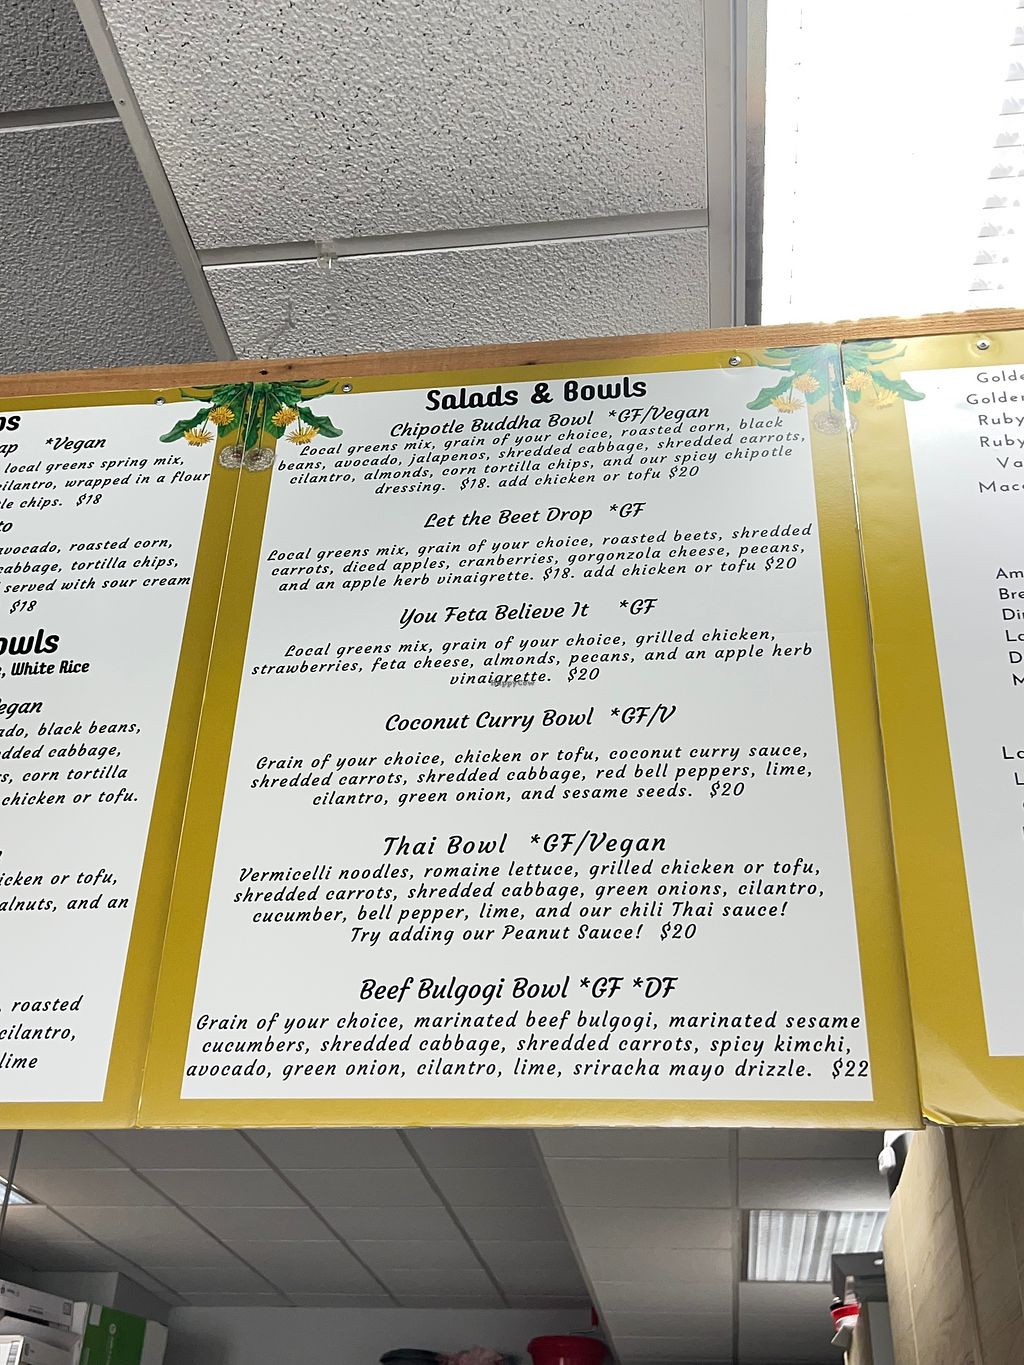 ap *Vegan
local greens spring mix,
cilantro, wrapped in a flour
chips. $18
avocado, roasted corn,
cabbage, tortilla chips,
served with sour cream
$18
White Rice
black beans,
cabbage,
corn tortilla
chicken or tofu.
or tofu,
and an
roasted
cilantro,
lime
Salads & Bowls
Chipotle Buddha Bowl *GF/Vegan
Local greens mix, grain of your choice, roasted corn, black
beans, avocado, jalapenos, shredded cabbage, shredded carrots,
cilantro, almonds, corn tortilla chips, and our spicy chipotle
dressing. $18. add chicken or tofu $20
Let the Beet Drop *GF
Local greens mix, grain of your choice, roasted beets, shredded
carrots, diced apples, cranberries, gorgonzola cheese, pecans,
and an apple herb vinaigrette. $18. add chicken or tofu $20
You Feta Believe It *GF
Local greens mix, grain of your choice, grilled chicken,
strawberries, feta cheese, almonds, pecans, and an apple herb
vinaigrette. $20
HappyCow
Coconut Curry Bowl *GF/V
Grain of your choice, chicken or tofu, coconut curry sauce,
shredded carrots, shredded cabbage, red bell peppers, lime,
cilantro, green onion, and sesame seeds. $20
Thai Bowl *GF/Vegan
Vermicelli noodles, romaine lettuce, grilled chicken or tofu,
shredded carrots, shredded cabbage, green onions, cilantro,
cucumber, bell pepper, lime, and our chili Thai sauce!
Try adding our Peanut Sauce! $20
Beef Bulgogi Bowl *GF *DF
Grain of your choice, marinated beef bulgogi, marinated sesame
cucumbers, shredded cabbage, shredded carrots, spicy kimchi,
avocado, green onion, cilantro, lime, sriracha mayo drizzle. $22
Golde
Golden
Ruby
Ruby
Va
Maca
Am
Bre
Di
La
D
M
La
L